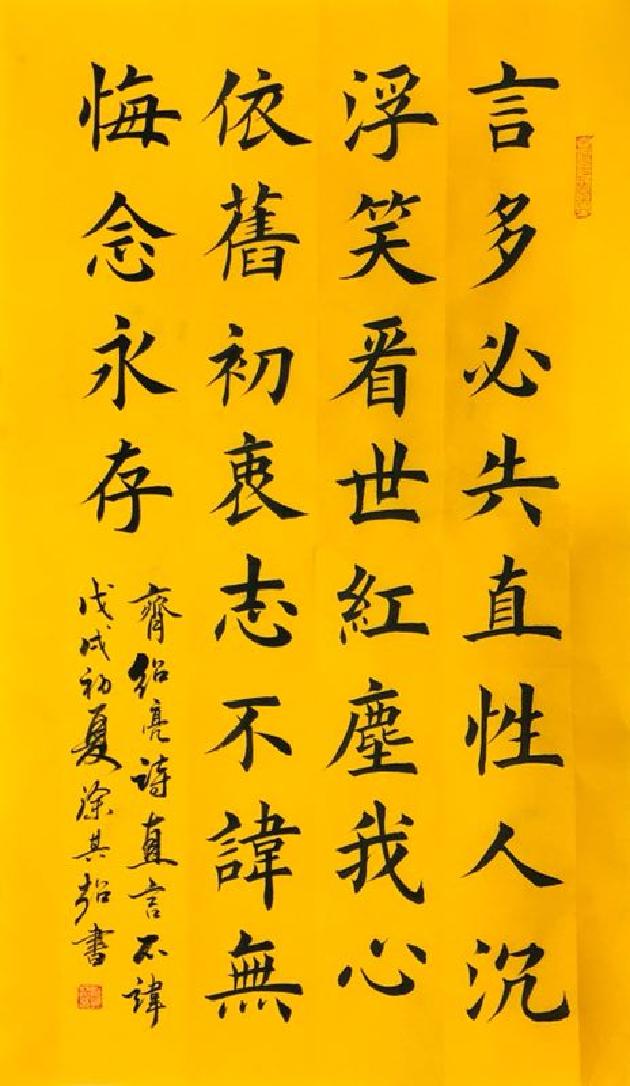 言多必失直性人沉
浮笑看世紅塵我心
依舊初衷志不諱無
悔念永存
齊紹亮詩直言不諱
戊戌初夏涂其超書